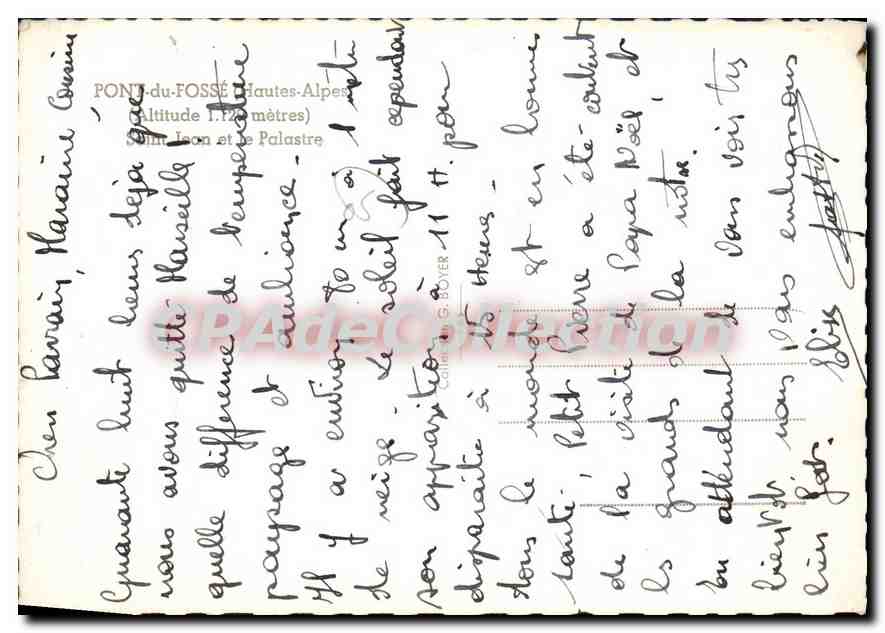 PONT-du-FOSSÉ (Hautes-Alpes)
(Altitude 1.120 mètres)
Saint Jean et le Palastre
Collection G. BOYER
CPAdeCollection
Cher Parrain, Marraine Cousine
Quarante huit heures déjà que
nous avons quitté Marseille!
quelle différence de température
paysage et ambiance.
Il y a environ 70 cm à 1 mètre
de neige. Le soleil fait cependant
son apparition à 11 H. pour
disparaître à 15 Heures.
Tous le monde est en bonne
santé. Petit Pierre a été content
de la visite de Papa Noël et
les grands de la notre.
En attendant de vous voir très
bientôt nous vous embrassons
bien fort. Elise